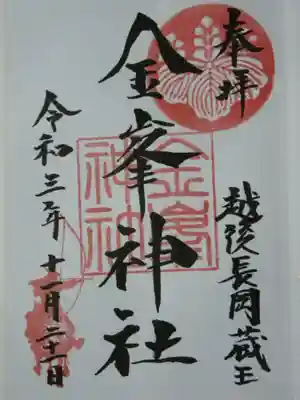 奉拝
越後長岡蔵王
金峯神社
金峯
神社
令和三年十一月二十一日